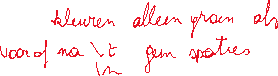 kleuren alleen groen als
voor of na \t geen spaties
\n